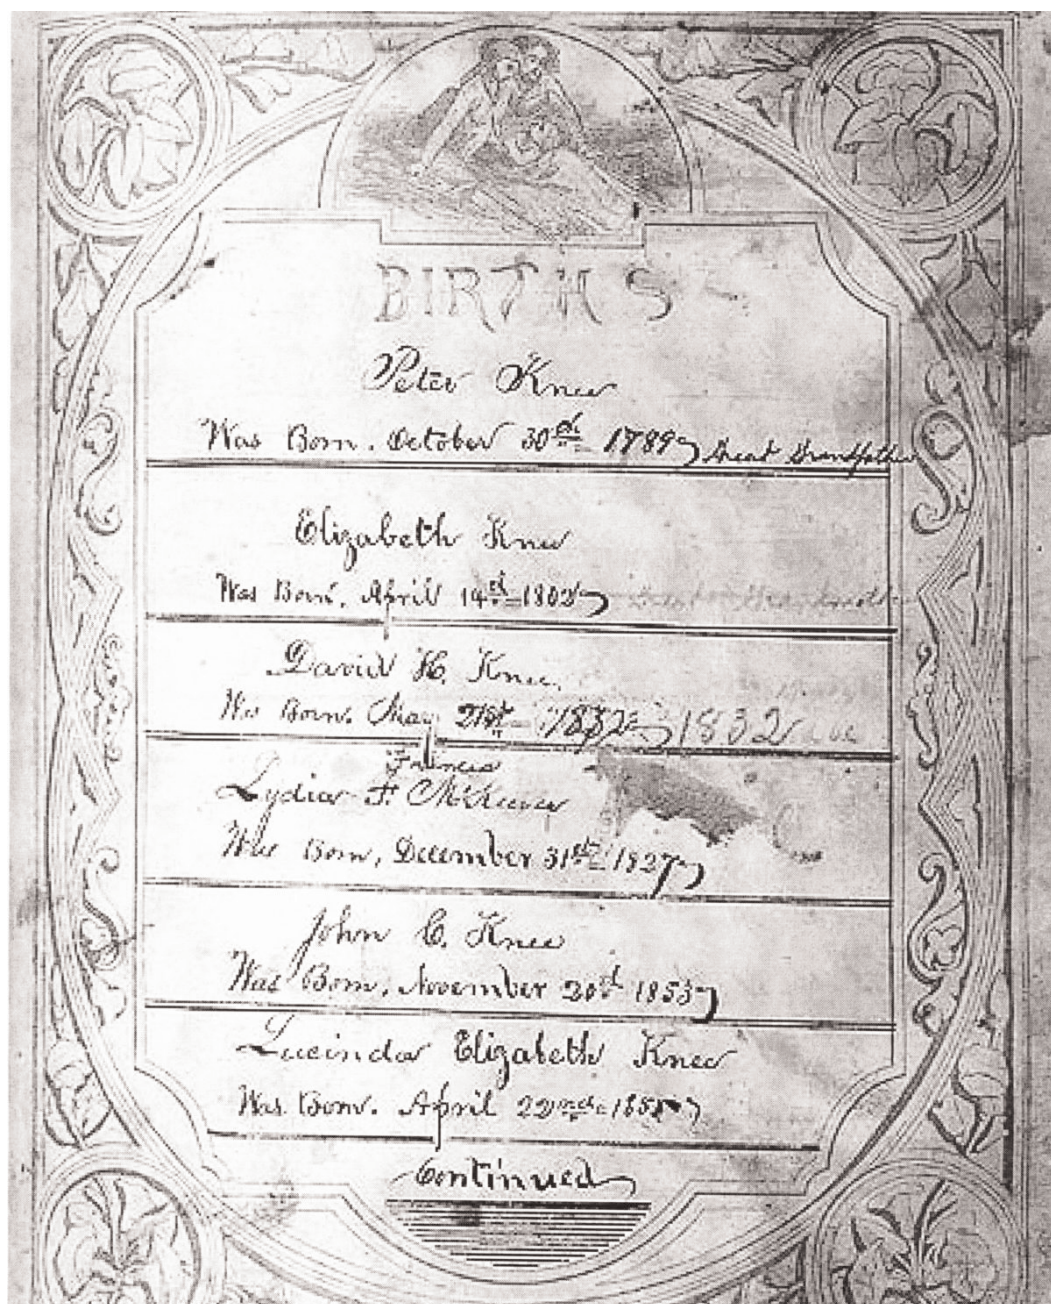 BIRTHS
Peter Knee
Was Born. October 30th 1789 Great Grandfather
Elizabeth Knee
Was Born. April 14th 1802 Great Grandmother
David H. Knee.
Was Born. May 21st 1832 1832
Frances
Lydia F. McKeever
Was Born, December 31st 1827
John C. Knee
Was Born, November 20th 1853
Lucinda Elizabeth Knee
Was Born. April 22nd
Continued